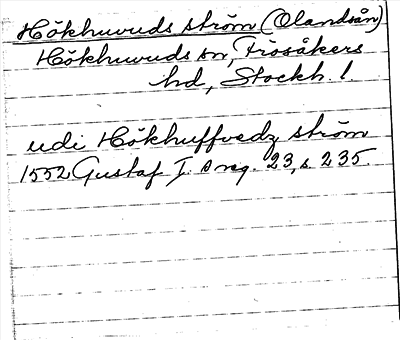 Hökhuvuds ström (Olandsån)
Hökhuvuds sn, Frosåkers
hd, Stockh. l.
udi Hökhuffvedz ström
1552 Gustaf I:s reg. 23, s. 235.